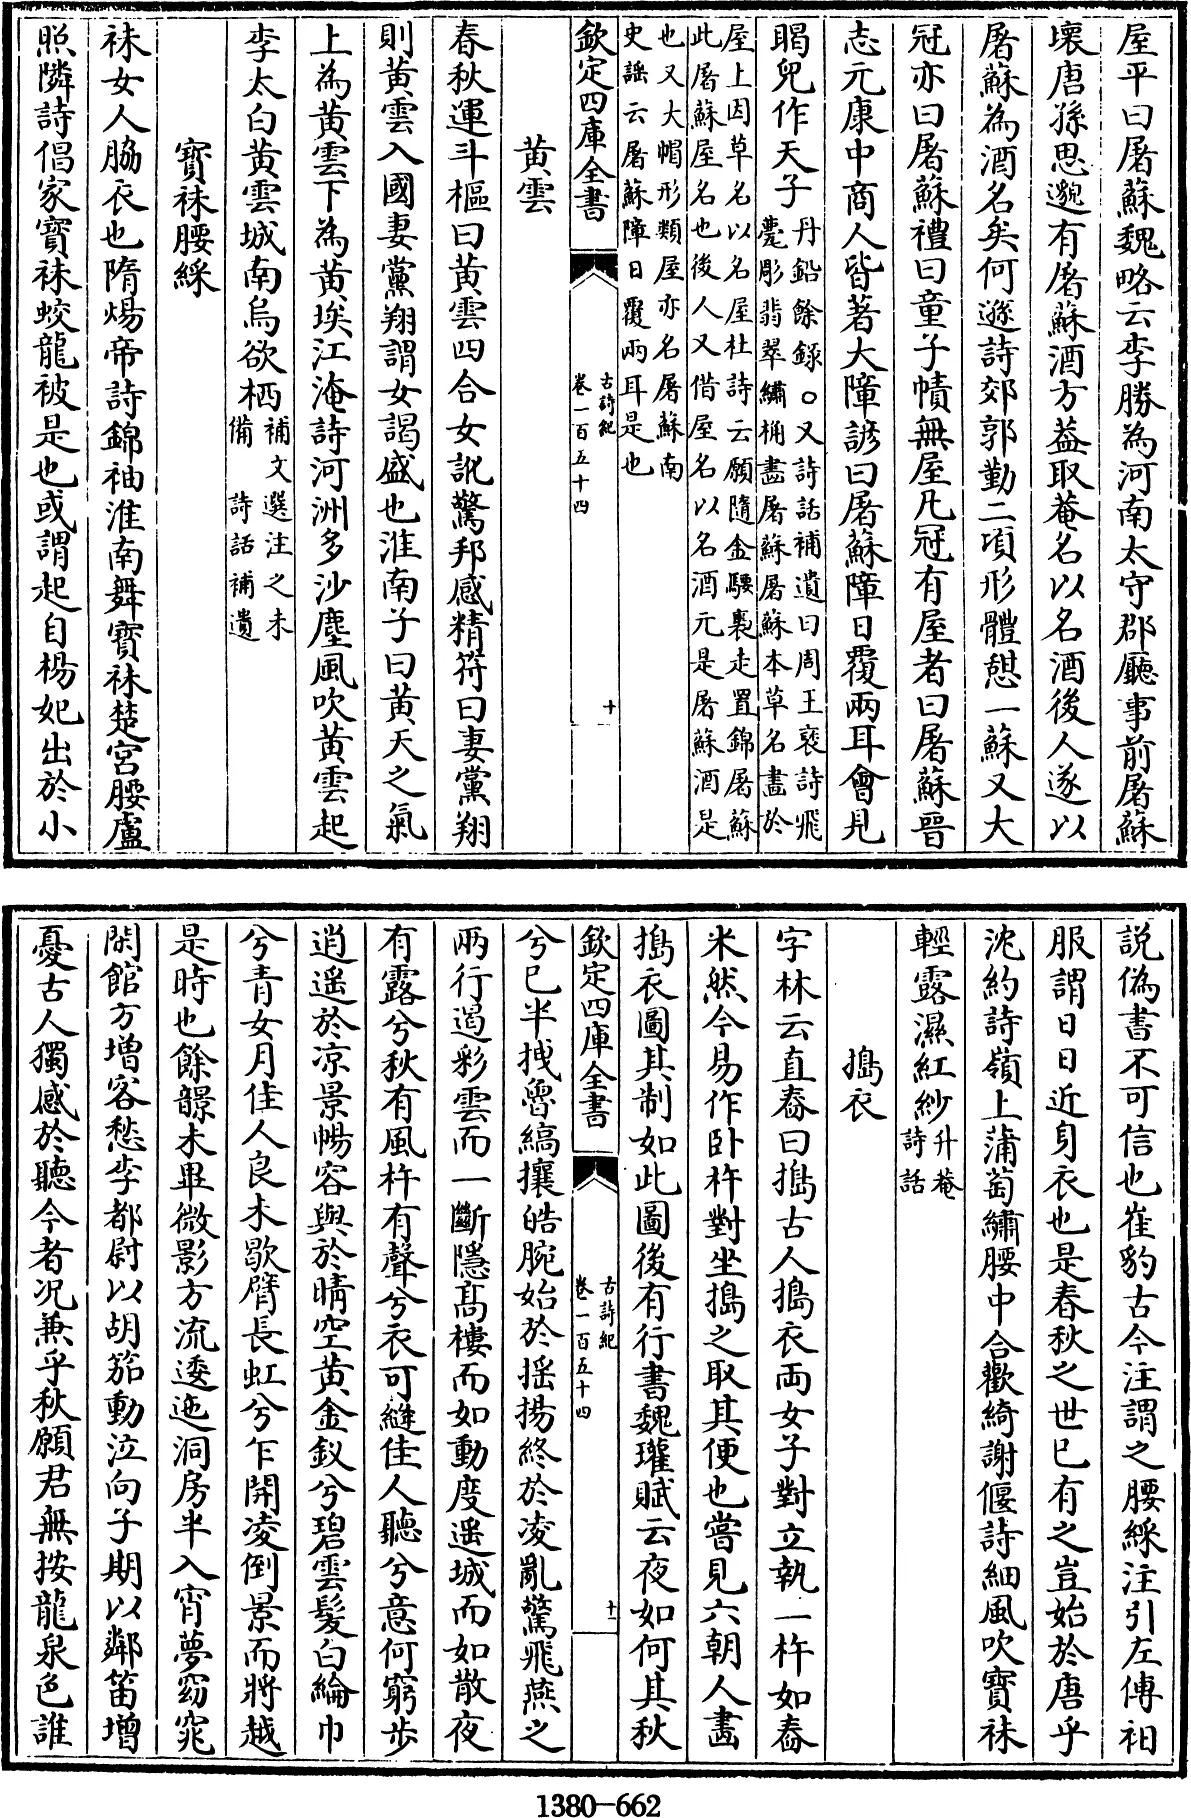 屋平曰屠蘇魏略云李勝為河南太守郡廳事前屠蘇
壞唐孫思邈有屠蘇酒方葢取菴名以名酒後人遂以
屠蘇為酒名矣何遜詩郊郭勤二項形體憩一蘇又大
冠亦曰屠蘇禮曰童子幘無屋凡冠有屋者曰屠蘇晉
志元康中商人皆著大障諺曰屠蘇障日覆兩耳會見
瞎兒作天子
丹鉛餘録○又詩話補遺曰周王襃詩飛
甍彫翡翠繡桷畫屠蘇屠蘇本草名畫於
屋上因草名以名屋杜詩云願隨金騕褭走置錦屠蘇
此屠蘇屋名也後人又借屋名以名酒元是屠蘇酒是
也又大帽形類屋亦名屠蘇南
史謡云屠蘇障日覆兩耳是也
欽定四庫全書
古詩紀
卷一百五十四
十
黄雲
春秋運斗樞曰黄雲四合女訛驚邦感精符曰妻黨翔
則黄雲入國妻黨翔謂女謁盛也淮南子曰黄天之氣
上為黄雲下為黄埃江淹詩河洲多沙塵風吹黄雲起
李太白黄雲城南烏欲栖
補文選注之未
備　詩話補遺
寳袜腰綵
袜女人脇衣也隋煬帝詩錦袖淮南舞寳袜楚宫腰盧
照隣詩倡家寳袜蛟龍被是也或謂起自楊妃出於小
説偽書不可信也崔豹古今注謂之腰綵注引左傳衵
服謂日日近身衣也是春秋之世已有之豈始於唐乎
沈約詩嶺上蒲萄繡腰中合歡綺謝偃詩細風吹寳袜
輕露濕紅紗
升菴
詩話
搗衣
字林云直舂曰搗古人搗衣兩女子對立執一杵如舂
米然今易作卧杵對坐搗之取其便也嘗見六朝人畫
搗衣圖其制如此圖後有行書魏璀賦云夜如何其秋
欽定四庫全書
古詩紀
卷一百五十四
十一
兮已半拽魯縞攘皓腕始於揺揚終於凌亂驚飛燕之
兩行遏彩雲而一斷隱髙樓而如動度遥城而如散夜
有露兮秋有風杵有聲兮衣可縫佳人聽兮意何窮步
逍遥於凉景暢容與於晴空黄金釵兮碧雲髮白綸巾
兮青女月佳人良未歇臂長虹兮乍開凌倒景而將越
是時也餘韻未畢微影方流逶迤洞房半入宵夢窈窕
閑館方增客愁李都尉以胡笳動泣向子期以鄰笛増
憂古人獨感於聽今者况兼乎秋願君無按龍泉色誰
1380—662